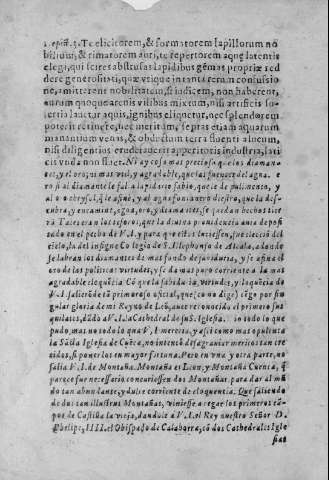 1. epist. 3. Te elicitorem, & formatorem lapillorum no
bilium, & rimatorem auri, te repertorem aquę latentis
elegi, qui scires abstrusas lapidibus gēmas propriæ red
dere generositati, quæ vtique in tanta rerum confusio
ne, amitterent nobilitatem, si iudicem, non haberent,
aurum quoque arenis vilibus mixtum, nisi artificis so
lertia lauetur aquis, ignibus eliquetur, nec splendorem
poterit retinere, nec meritum, se pras etiam aquarum
manantium venas, & obductum terra fluenti alueum,
nisi diligentius eruderauerit appetitoris industria, lati
cis vnda non fluet. Ni ay cosa mas preciosa que los diaman
tes, y el oro, ni mas vtil, y agradable, que las fuentes del agua.
ro si al diamante le falta lapidario sabio, que le de pulimento, y
al oro chrysol, q̄ le afine, y al agua fontanero diestro, que la descu
bra, y encamine, agua, oro, y diamantes, se quedan hechos tier
ra. Caueras son los tesoros, que la diuina prouidencia auia deposi
tado en el pecho de V. I. y para que estos luciessen, fue eleccion del
cielo, la del insigne Colegio de S. Illephonso de Alcala, adonde
se labran los diamantes de mas fondo de sabiduria, y se afina el
oro de las politicas virtudes, y se da mas puro corriente a la mas
agradable eloquēcia Cō que la sabiduria, virtudes, y loquēcia de
V. I. salierō de tā primoroso oficial, que (co no dige) cīgo por sin
gular gloria de mi Reyno de Leō, auer reconocido el primero sus
quilates, dādo a V. I. la Cathedral de su S. Iglesia. io todo lo que
pudo, mas no todo lo que V. I. merecia, y assi como mas opulenta
la Sāta Iglesia de Cuēca, no intentò desagrauiar meritos tan cre
cidos, si ponerlos en mayor fortuna. Pero en vna y otra parte, no
salia V. I. de Montaña. Montaña es Leon, y Montaña Cuenca, q̄
parece fue necessario concuriessen dos Montañas para dar al mū
do tan abundante, y dulce corriente de eloquencia. Que saliendo
de dos tan illustres Montañas, viniesse a regar los primeros cā-
pos de Castilla la vieja, dandole a V. I. el Rey nuestro Señor D.
Phelipe, IIII. el Obispado de Calahorra, cō dos Cathedrales Igle
sias